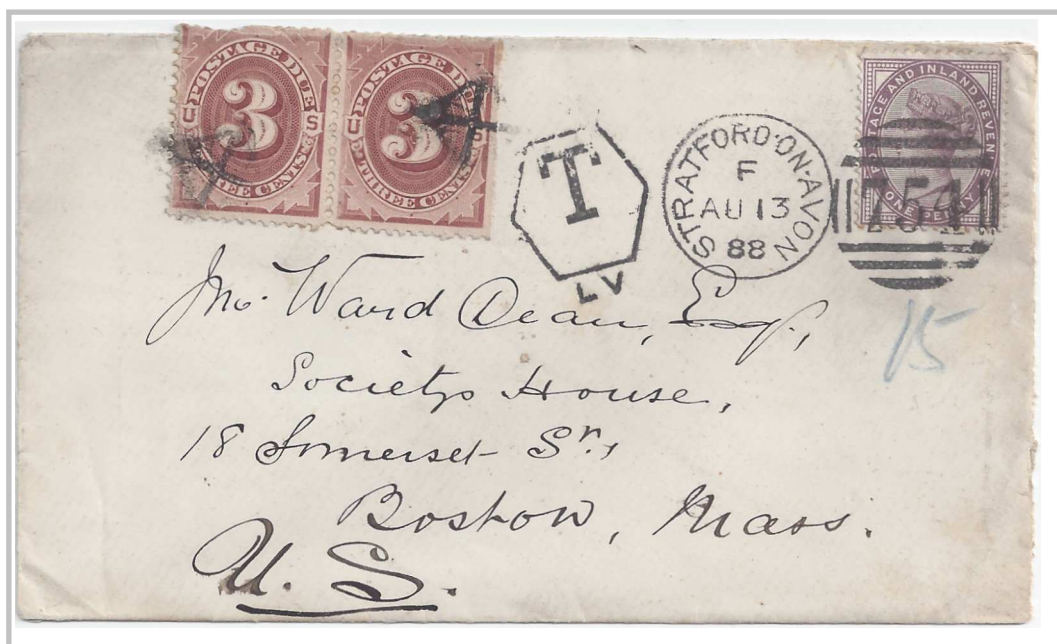 POSTAGE DUE
U 3 S
THREE CENTS
POSTAGE DUE
U 3 S
THREE CENTS
T
LV
STRATFORD-ON-AVON
F
AU 13
88
POSTAGE AND INLAND REVENUE
ONE PENNY
754
15
Jno. Ward Dean, Esq.,
Society's House,
18 Somerset St.,
Boston, Mass.
U. S.